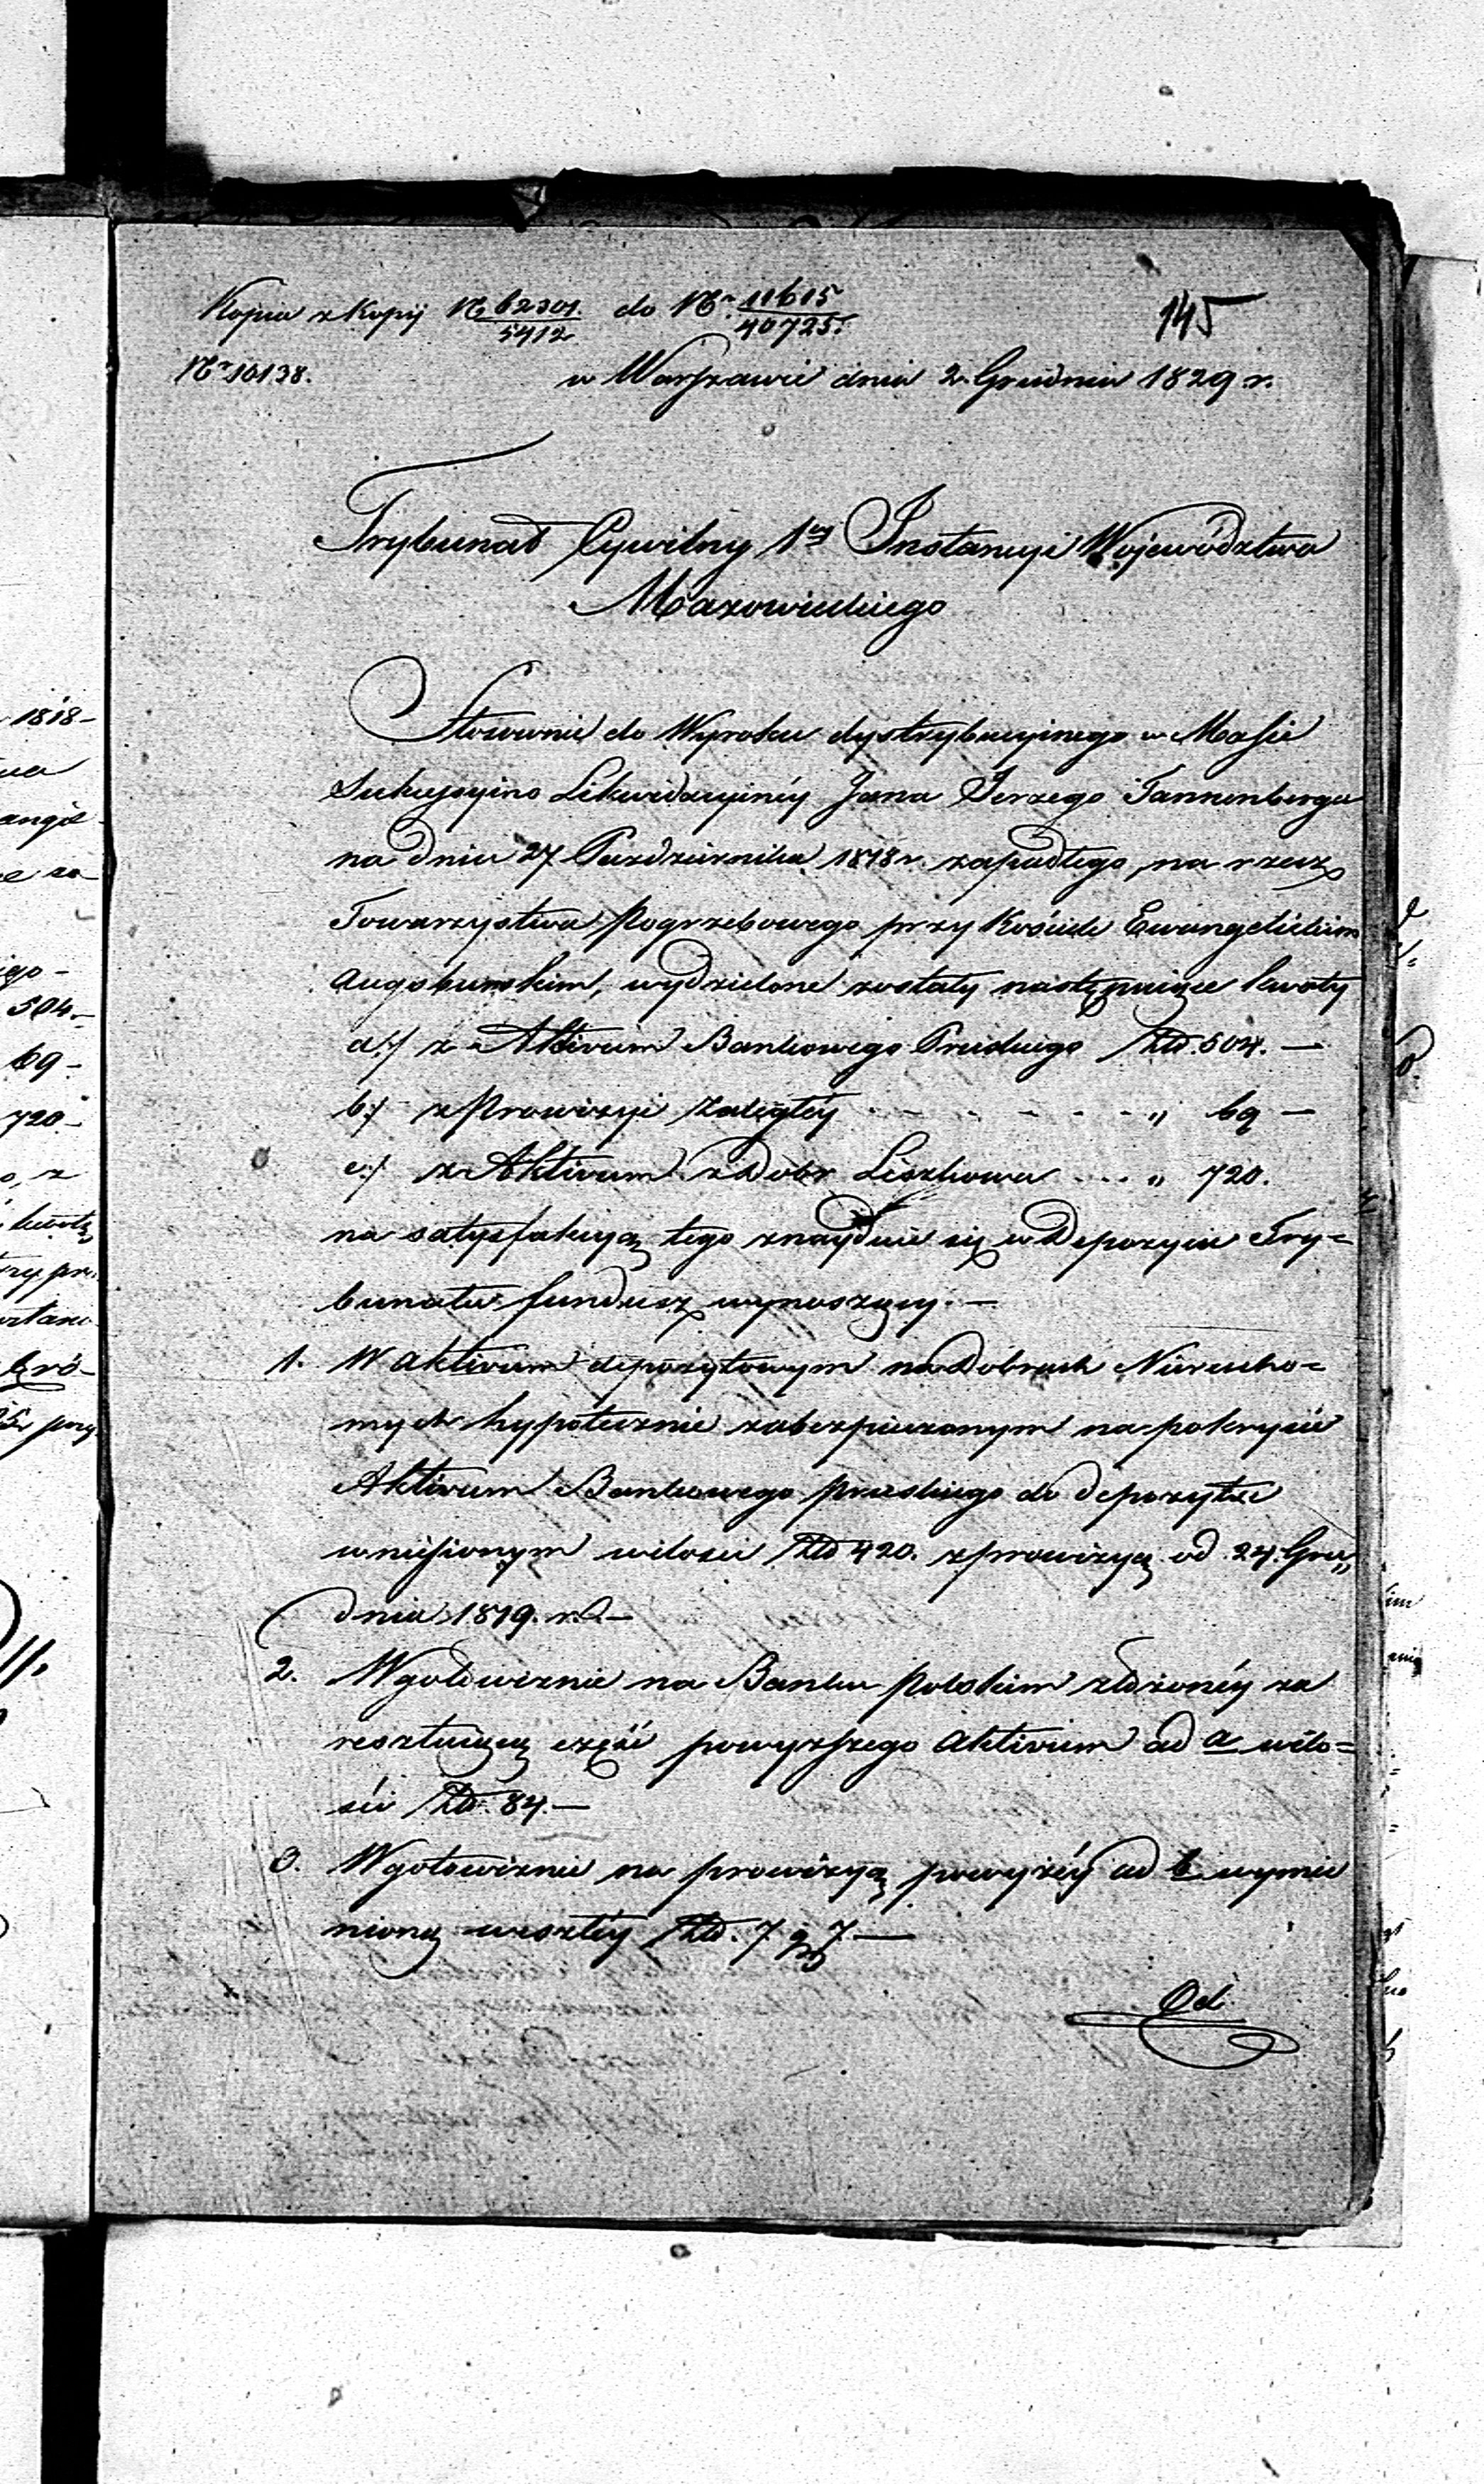 Kopia z Kopij Nr 62301/5412 do Nr 11615/40725.
145
Nr 10138.
w Warszawie dnia 2. Grudnia 1829 r.
Trybunał Cywilny 1ey Instancyi Województwa
Mazowieckiego
Stosownie do Wyroku dystrybucyinego w Massie
Sukcessyino Likwidacyinéy Jana Jerzego Tannenberga
na dniu 27 Pazdziernika 1818 r. zapadłego, na rzecz
Towarzystwa Pogrzebowego przy Kościele Ewangelickim
Augsburskim, wydzielone zostały następuiące kwoty
a:/ z Aktivum Bankowego Pruskiego Złd. 504. —
b:/ z Prowizyi zaległéy - - - - - - „ 69 —
c:/ z Aktivum z Dobr Liszkowa . . . „ 720.
na satysfakcyą tego znayduie się w Depozycie Try=
bunału fundusz wynoszący. —
1. W aktivum depozytowym na Dobrach Nierucho=
mych hypotecznie zabezpieczonym na pokrycie
Aktivum Bankowego pruskiego do depozytu
wniesionym w ilości Złd 420. z prowizyą od 24. Gru„
dnia 1819. r. —
2. W gotowiznie na Banku polskim złożonéy za
resztuiącą część powyższego aktivum ad a w ilo=
ści Złd. 84. —
3. W gotowiznie na prowizyą powyżéy ad b wymie
nioną weszłéy Złd. 7 gr 7 —
Od
1818 —
504. —
69 —
720. —